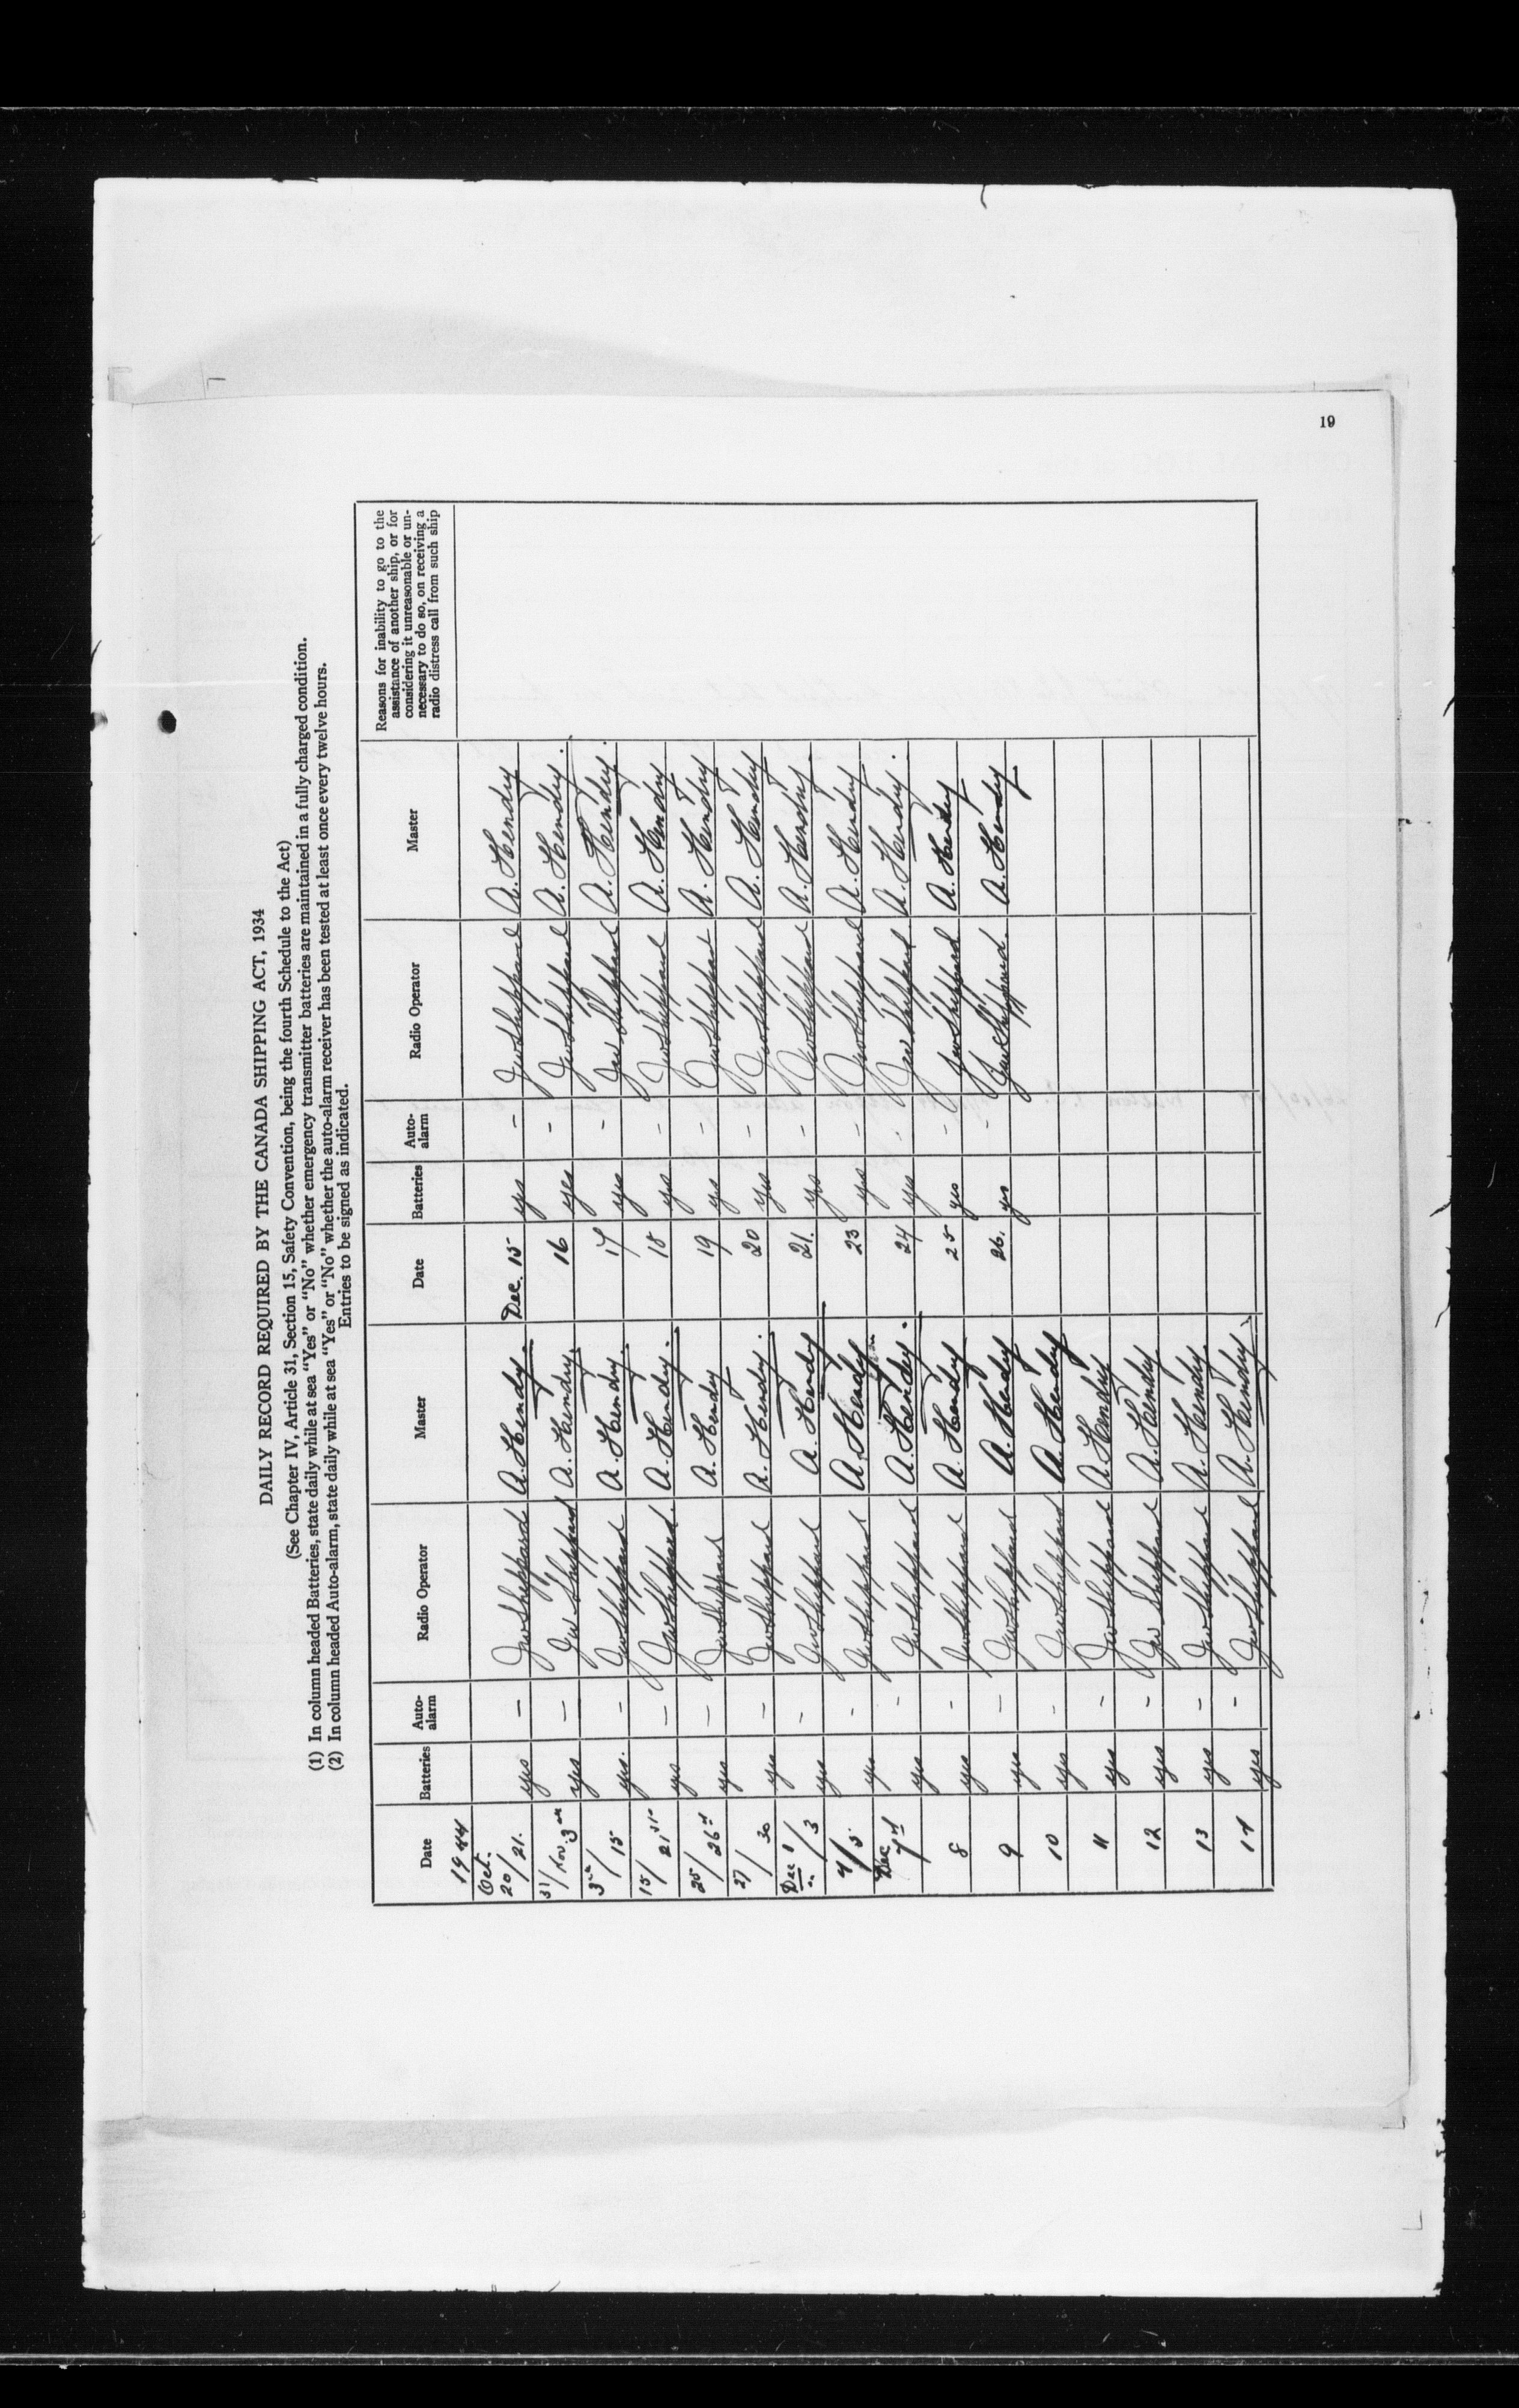 19
DAILY RECORD REQUIRED BY THE CANADA SHIPPING ACT, 1934
(See Chapter IV, Article 31, Section 15, Safety Convention, being the fourth Schedule to the Act)
(1) In column headed Batteries, state daily while at sea "Yes" or "No" whether emergency transmitter batteries are maintained in a fully charged condition.
(2) In column headed Auto-alarm, state daily while at sea "Yes" or "No" whether the auto-alarm receiver has been tested at least once every twelve hours.
Entries to be signed as indicated.
Date Batteries Auto-alarm Radio Operator Master Date Batteries Auto-alarm Radio Operator Master Reasons for inability to go to the assistance of another ship, or for considering it unreasonable or un-necessary to do so, on receiving a radio distress call from such ship
1944
Oct. 20/21. yes — Geo Sheppard A. Hendry. Dec. 15 yes - Geo Sheppard A. Hendry
31/Nov. 3rd yes — Geo Sheppard A. Hendry. 16 yes - Geo Sheppard A. Hendry.
3rd/15 yes. - Geo Sheppard A. Hendry. 17 yes - Geo Sheppard A. Hendry.
15/21st yes — Geo Sheppard. A. Hendry. 18 yes - Geo Sheppard A. Hendry
25/26th yes — Geo Sheppard A. Hendry 19 yes - Geo Sheppard A. Hendry
27/30 yes - Geo Sheppard A. Hendry. 20 yes - Geo Sheppard A. Hendry
Dec 1/ " 3 yes - Geo Sheppard A. Hendry 21. yes - Geo Sheppard A. Hendry.
4/5. yes - Geo Sheppard A. Hendry 23 yes - Geo Sheppard A. Hendry
Dec 7th yes - Geo Sheppard A. Hendry. 24 yes - Geo Sheppard A. Hendry.
8 yes - Geo Sheppard A. Hendry 25 yes - Geo Sheppard A. Hendry
9 yes — Geo Sheppard A. Hendry 26. yes - Geo Sheppard. A. Hendry
10 yes - Geo Sheppard A. Hendry
11 yes - Geo Sheppard A. Hendry
12 yes - Geo Sheppard A. Hendry
13 yes - Geo Sheppard A. Hendry
14 yes - Geo Sheppard A. Hendry.